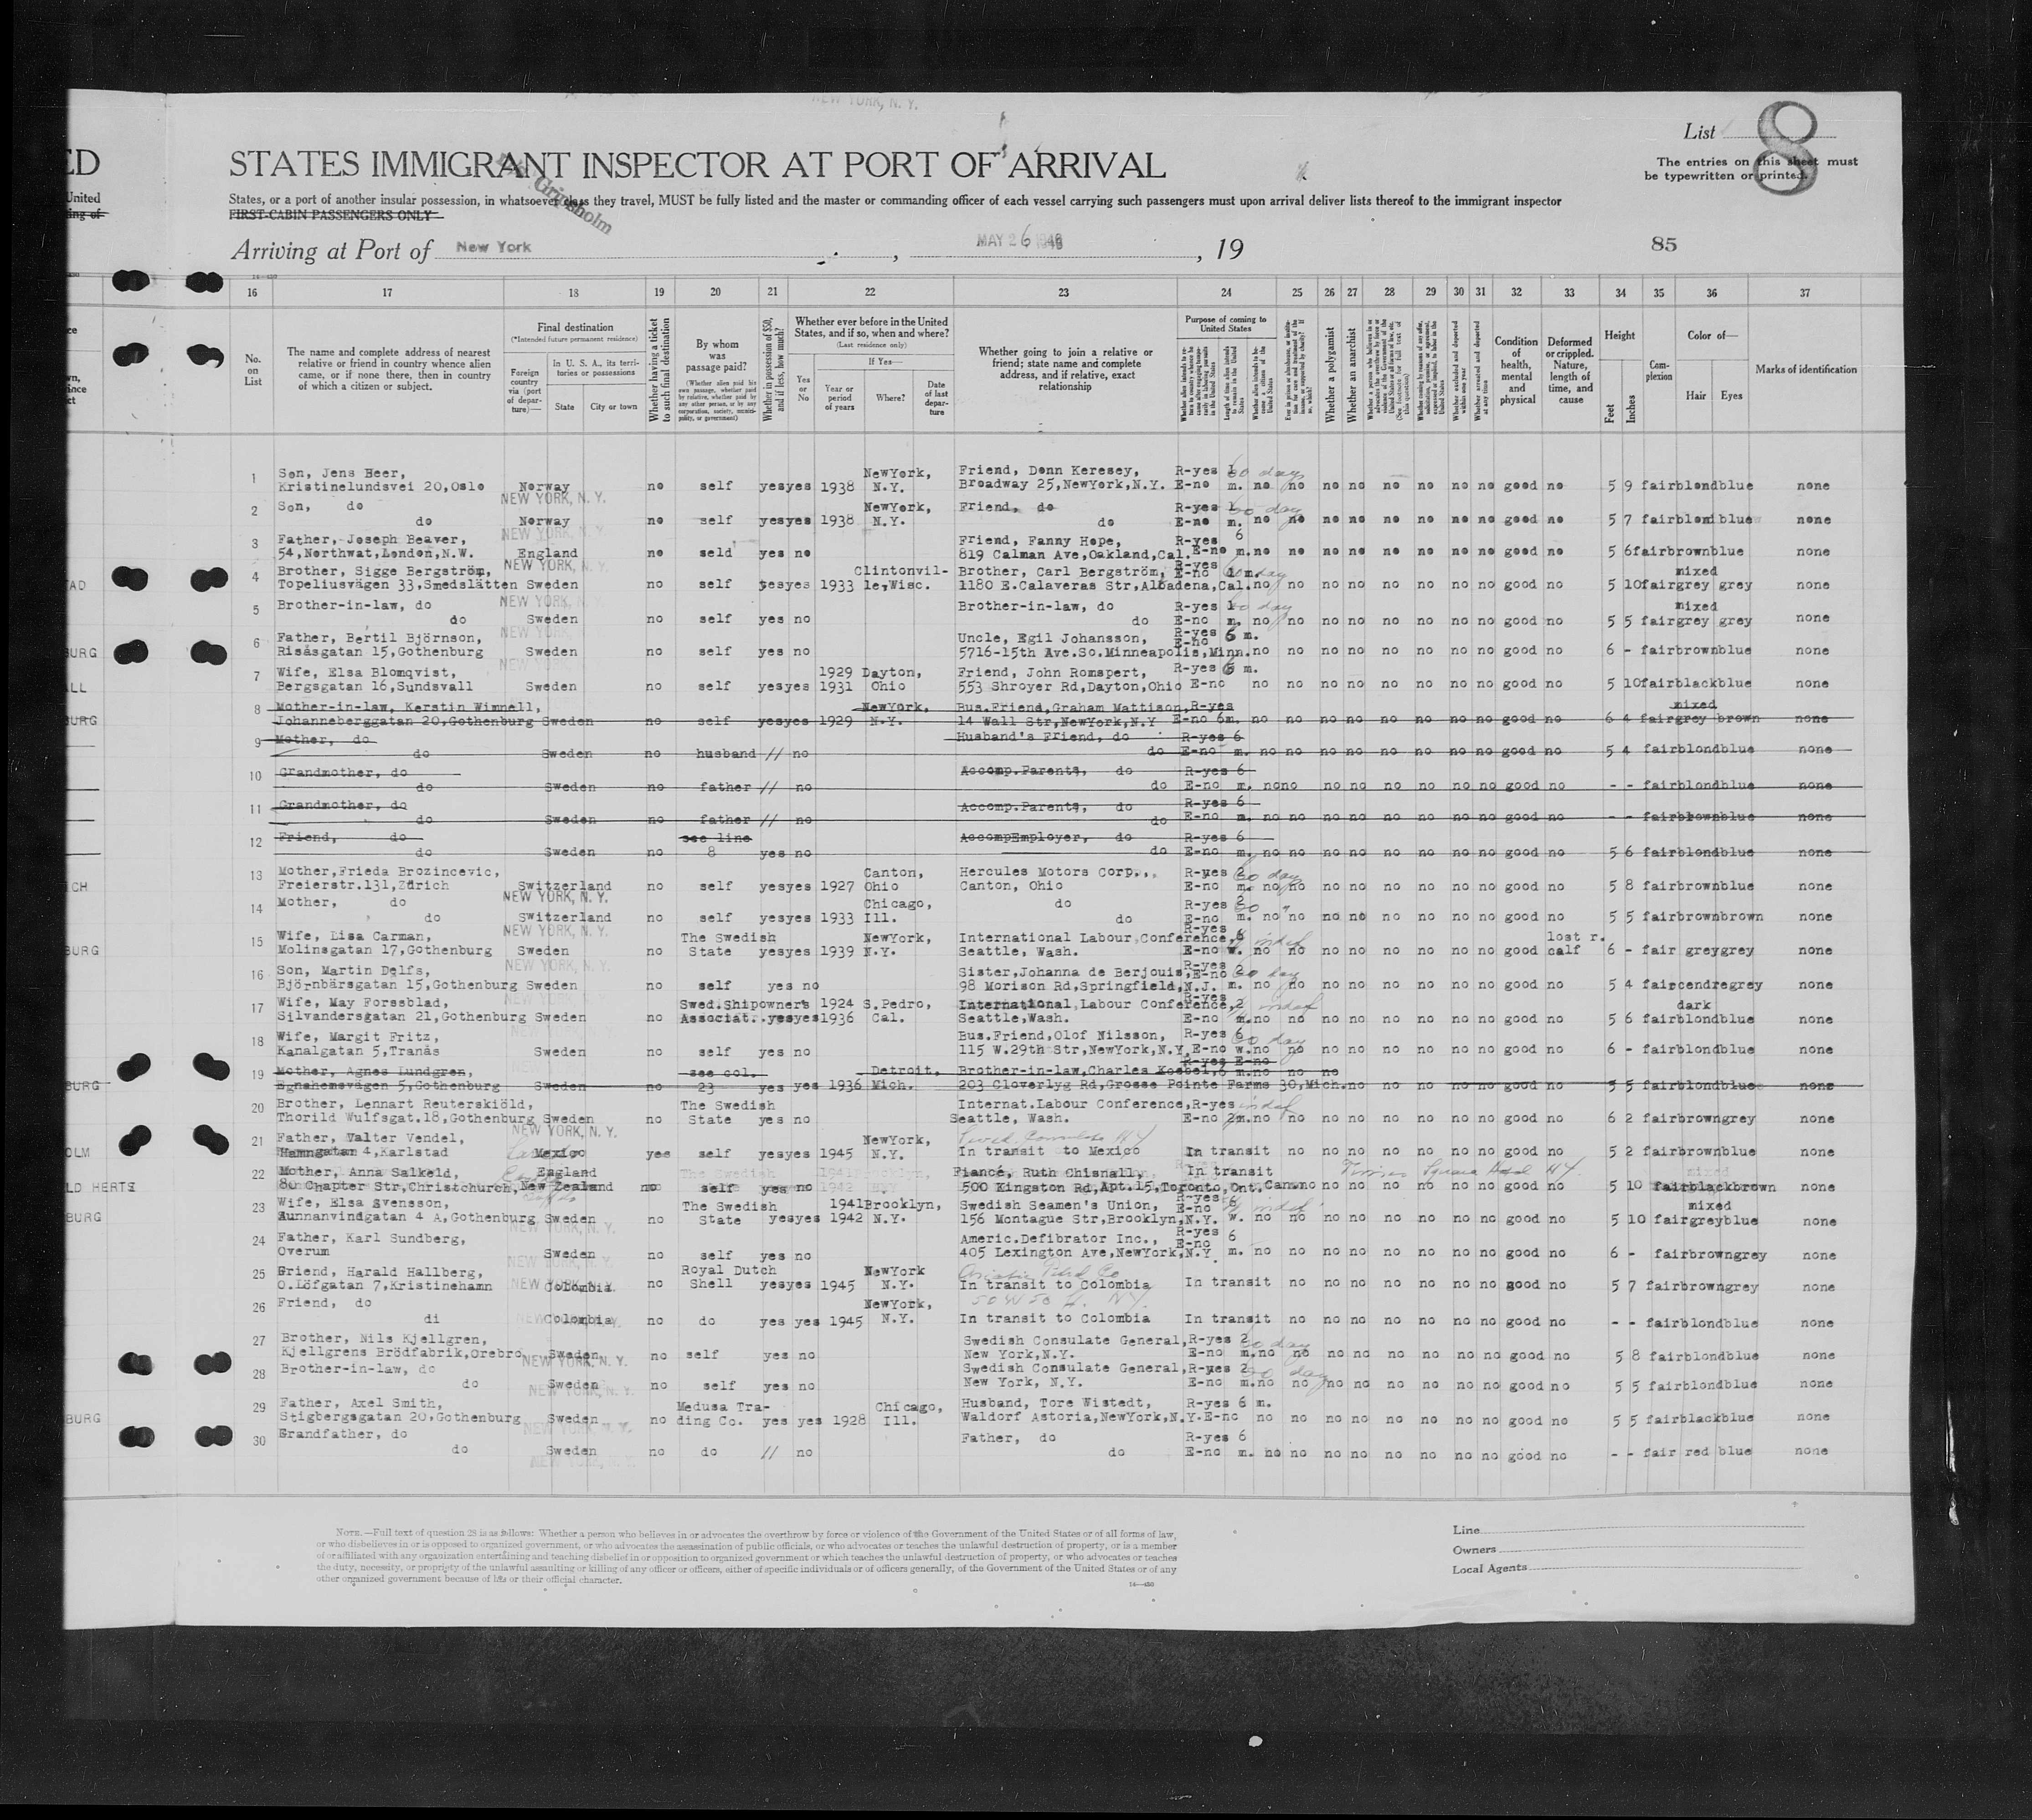 NEW YORK, N. Y.
List 8
ED STATES IMMIGRANT INSPECTOR AT PORT OF ARRIVAL
The entries on this sheet must
be typewritten or printed.
Gripsholm
United States, or a port of another insular possession, in whatsoever class they travel, MUST be fully listed and the master or commanding officer of each vessel carrying such passengers must upon arrival deliver lists thereof to the immigrant inspector
FIRST-CABIN PASSENGERS ONLY
Arriving at Port of New York , MAY 26 1946 , 19 85
16 17 18 19 20 21 22 23 24 25 26 27 28 29 30 31 32 33 34 35 36 37
No. on List
The name and complete address of nearest relative or friend in country whence alien came, or if none there, then in country of which a citizen or subject.
Final destination
(*Intended future permanent residence)
Foreign country via (port of departure)—
In U. S. A., its territories or possessions
State
City or town
Whether having a ticket to such final destination
By whom was passage paid?
(Whether alien paid his own passage, whether paid by relative, whether paid by any other person, or by any corporation, society, municipality, or government)
Whether in possession of $50, and if less, how much?
Whether ever before in the United States, and if so, when and where?
(Last residence only)
Yes or No
If Yes—
Year or period of years
Where?
Date of last departure
Whether going to join a relative or friend; state name and complete address, and if relative, exact relationship
Purpose of coming to United States
Length of time alien intends to remain in the United States
Whether alien intends to become a citizen of the United States
Whether a polygamist
Whether an anarchist
Whether excluded and deported within one year
Whether arrested and deported at any time
Condition of health, mental and physical
Deformed or crippled. Nature, length of time, and cause
Height
Feet
Inches
Complexion
Color of—
Hair
Eyes
Marks of identification
1 Son, Jens Heer, NewYork, Friend, Donn Keresey, R-yes 1 60 days
Kristinelundsvei 20,Oslo Norway no self yes yes 1938 N.Y. Broadway 25,NewYork,N.Y. E-no m. no no no no no no no no good no 5 9 fair blond blue none
NEW YORK, N. Y.
2 Son, do NewYork, Friend, do R-yes 1 60 days
do Norway no self yes yes 1938 N.Y. do E-no m. no no no no no no no no good no 5 7 fair blond blue none
3 Father, Joseph Beaver, Friend, Fanny Hope, R-yes 6
54,Northwat,London,N.W. England no seld yes no 819 Calman Ave,Oakland,Cal. E-no m. no no no no no no no no good no 5 6 fair brown blue none
NEW YORK, N. Y.
4 Brother, Sigge Bergström, Clintonvil- Brother, Carl Bergström, R-yes E-no 1 m. 60 days mixed
TAD Topeliusvägen 33,Smedslätten Sweden no self yes yes 1933 le,Wisc. 1180 E.Calaveras Str,Albadena,Cal. no no no no no no no no good no 5 10 fair grey grey none
NEW YORK, N. Y.
5 Brother-in-law, do Brother-in-law, do R-yes 1 60 day mixed
do Sweden no self yes no do E-no m. no no no no no no no no good no 5 5 fair grey grey none
6 Father, Bertil Björnson, Uncle, Egil Johansson, R-yes E-no 6 m.
BURG Risåsgatan 15,Gothenburg Sweden no self yes no 5716-15th Ave.So.Minneapolis,Minn. no no no no no no no no good no 6 - fair brown blue none
7 Wife, Elsa Blomqvist, 1929 Dayton, Friend, John Romspert, R-yes 6 m.
ALL Bergsgatan 16,Sundsvall Sweden no self yes yes 1931 Ohio 553 Shroyer Rd,Dayton,Ohio E-no no no no no no no no no good no 5 10 fair black blue none
8 Mother-in-law, Kerstin Wimnell, NewYork, Bus.Friend,Graham Mattison, R-yes mixed
BURG Johanneberggatan 20,Gothenburg Sweden no self yes yes 1929 N.Y. 14 Wall Str,NewYork,N.Y E-no 6m. no no no no no no no no good no 6 4 fair grey brown none
9 Mother, do Husband's Friend, do R-yes 6
do Sweden no husband // no do E-no m. no no no no no no no no good no 5 4 fair blond blue none
10 Grandmother, do Accomp.Parents, do R-yes 6
do Sweden no father // no do E-no m. no no no no no no no no good no - - fair blond blue none
11 Grandmother, do Accomp.Parents, do R-yes 6
do Sweden no father // no do E-no m. no no no no no no no no good no - - fair brown blue none
12 Friend, do see line AccompEmployer, do R-yes 6
do Sweden no 8 yes no do E-no m. no no no no no no no no good no 5 6 fair blond blue none
13 Mother,Frieda Brozincevic, Canton, Hercules Motors Corp.,, R-yes 2 60 day
ICH Freierstr.131,Zürich Switzerland no self yes yes 1927 Ohio Canton, Ohio E-no m. no no no no no no no no good no 5 8 fair brown blue none
NEW YORK, N. Y.
14 Mother, do Chicago, do R-yes 2 60 "
do Switzerland no self yes yes 1933 Ill. do E-no m. no no no no no no no no good no 5 5 fair brown brown none
NEW YORK, N. Y.
15 Wife, Lisa Carman, The Swedish NewYork, International Labour,Conference, R-yes 6 indef lost r.
BURG Molinsgatan 17,Gothenburg Sweden no State yes yes 1939 N.Y. Seattle, Wash. E-no w. no no no no no no no no good calf 6 - fair grey grey none
NEW YORK, N. Y.
16 Son, Martin Delfs, Sister,Johanna de Berjouis, R-yes E-no 2 60 day
Björnbärsgatan 15,Gothenburg Sweden no self yes no 98 Morison Rd,Springfield,N.J. m. no no no no no no no no good no 5 4 fair cendre grey none
17 Wife, May Forssblad, Swed.Shipowners 1924 S.Pedro, International,Labour Conference, R-yes 2 indef dark
Silvandersgatan 21,Gothenburg Sweden no Associat. yes yes 1936 Cal. Seattle,Wash. E-no m. no no no no no no no no good no 5 6 fair blond blue none
18 Wife, Margit Fritz, Bus.Friend,Olof Nilsson, R-yes 6 60 day
Kanalgatan 5,Tranås Sweden no self yes no 115 W.29th Str,NewYork,N.Y. E-no w. no no no no no no no no good no 6 - fair blond blue none
19 Mother, Agnes Lundgren, see col. Detroit, Brother-in-law,Charles Koebel, R-yes E-no 6 m. no no no no
BURG Egnahemsvägen 5,Gothenburg Sweden no 23 yes yes 1936 Mich. 203 Cloverlyg Rd,Grosse Pointe Farms 30,Mich. no no no no no good no 5 5 fair blond blue none
20 Brother, Lennart Reuterskiöld, The Swedish Internat.Labour Conference, R-yes indef
Thorild Wulfsgat.18,Gothenburg Sweden no State yes no Seattle, Wash. E-no 2m. no no no no no no no no good no 6 2 fair brown grey none
NEW YORK, N. Y.
21 Father, Valter Vendel, NewYork, Swed. Consulate NY
OLM Hamngatan 4,Karlstad Mexico yes self yes yes 1945 N.Y. In transit to Mexico In transit no no no no no no no good no 5 2 fair brown blue none
22 Mother, Anna Salkeld, England Fiancé, Ruth Chisnall, In transit Times Square Hotel NY.
LD HERTS 80 Chapter Str,Christchurch, New Zealand no self yes no 500 Kingston Rd,Apt.15,Toronto,Ont. Can. no no no no no no no no good no 5 10 fair black brown none
23 Wife, Elsa Svensson, The Swedish 1941 Brooklyn, Swedish Seamen's Union, R-yes E-no 6 indef mixed
BURG Nunnanvindgatan 4 A,Gothenburg Sweden no State yes yes 1942 N.Y. 156 Montague Str,Brooklyn,N.Y. w. no no no no no no no no good no 5 10 fair grey blue none
24 Father, Karl Sundberg, Americ.Defibrator Inc., R-yes E-no 6
Overum Sweden no self yes no 405 Lexington Ave,NewYork,N.Y m. no no no no no no no no good no 6 - fair brown grey none
25 Friend, Harald Hallberg, Royal Dutch NewYork Asiatic Petrol Co
O.Löfgatan 7,Kristinehamn Colombia no Shell yes yes 1945 N.Y. In transit to Colombia In transit no no no no no no no good no 5 7 fair brown grey none
26 Friend, do NewYork, 50 W 50 St. NY.
di Colombia no do yes yes 1945 N.Y. In transit to Colombia In transit no no no no no no no good no - - fair blond blue none
27 Brother, Nils Kjellgren, Swedish Consulate General, R-yes 2 60 day
Kjellgrens Brödfabrik,Orebro Sweden no self yes no New York,N.Y. E-no m. no no no no no no no no good no 5 8 fair blond blue none
NEW YORK, N. Y.
28 Brother-in-law, do Swedish Consulate General, R-yes 2 60 day
do Sweden no self yes no New York, N.Y. E-no m. no no no no no no no no good no 5 5 fair blond blue none
29 Father, Axel Smith, Medusa Tra- Chicago, Husband, Tore Wistedt, R-yes 6 m.
BURG Stigbergsgatan 20,Gothenburg Sweden no ding Co. yes yes 1928 Ill. Waldorf Astoria,NewYork,N.Y. E-no no no no no no no no no good no 5 5 fair black blue none
30 Grandfather, do Father, do R-yes 6
do Sweden no do // no do E-no m. no no no no no no no no good no - - fair red blue none
NOTE.—Full text of question 28 is as follows: Whether a person who believes in or advocates the overthrow by force or violence of the Government of the United States or of all forms of law,
or who disbelieves in or is opposed to organized government, or who advocates the assassination of public officials, or who advocates or teaches the unlawful destruction of property, or is a member
of or affiliated with any organization entertaining and teaching disbelief in or opposition to organized government or which teaches the unlawful destruction of property, or who advocates or teaches
the duty, necessity, or propriety of the unlawful assaulting or killing of any officer or officers, either of specific individuals or of officers generally, of the Government of the United States or of any
other organized government because of his or their official character.
Line
Owners
Local Agents